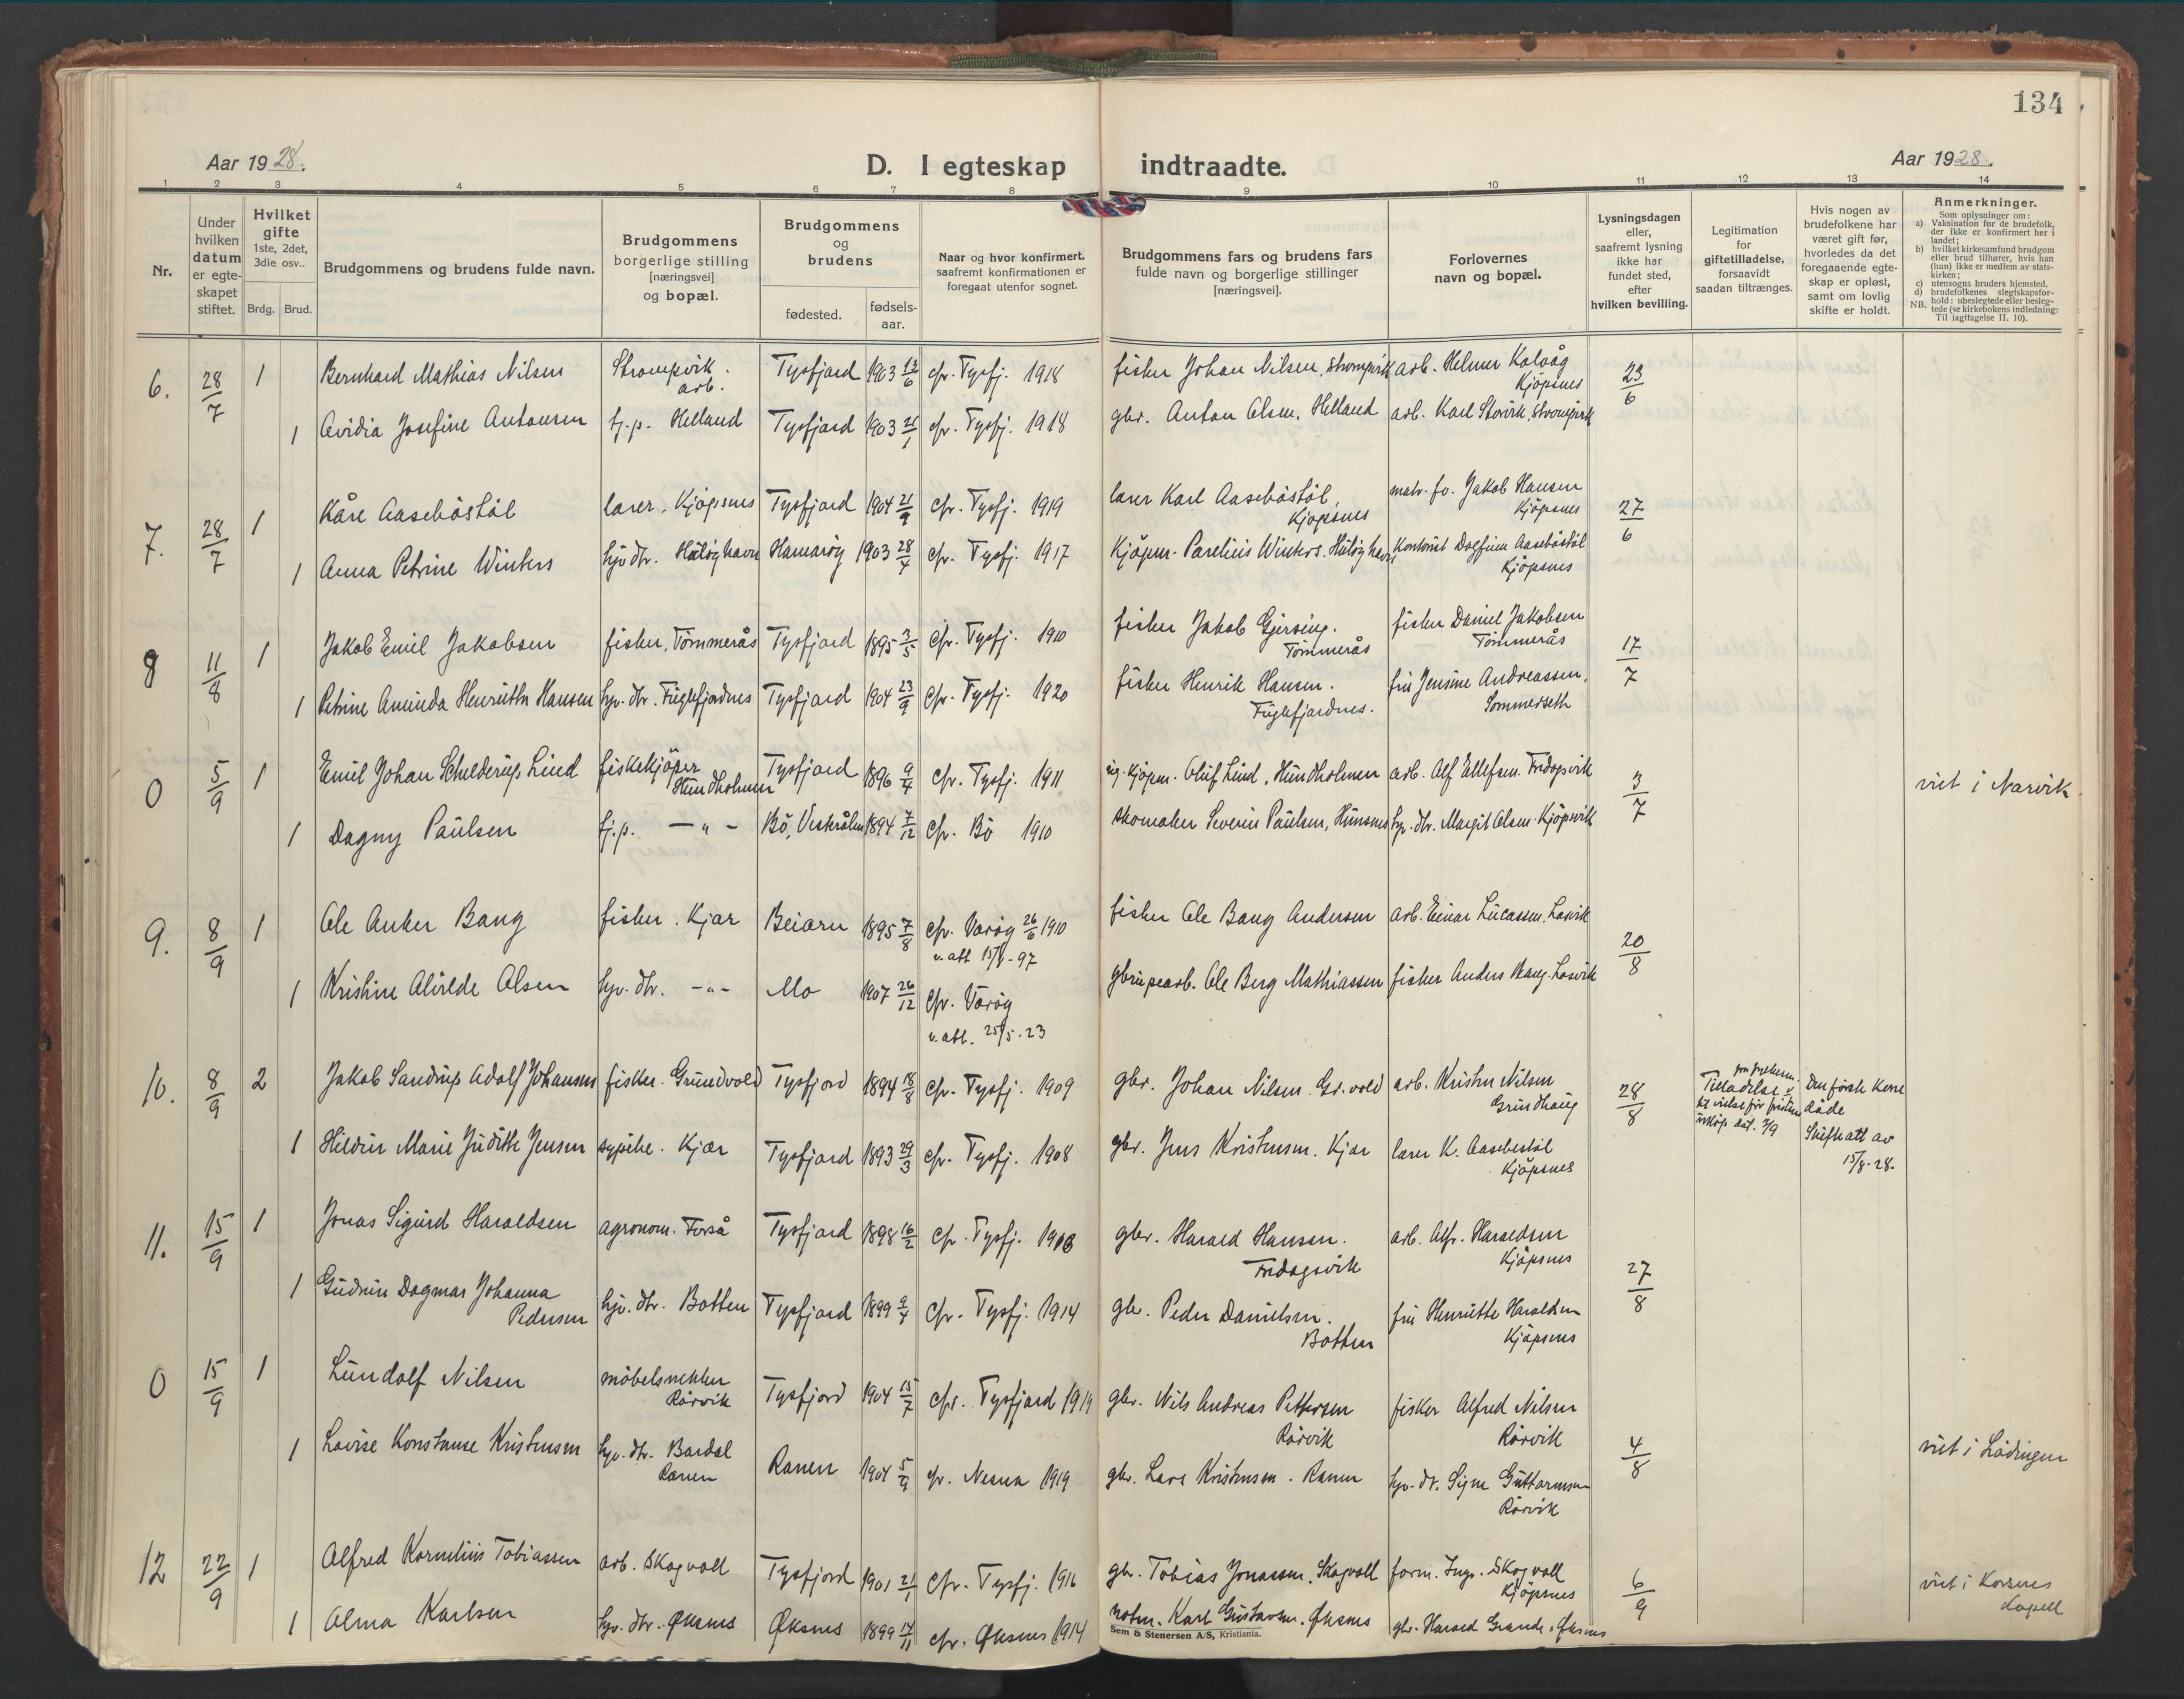 134
Aar 1928.
D. I egteskap indtraadte.
Aar 1928.
1 2 3 4 5 6 7 8 9 10 11 12 13 14
Nr.
Under hvilken datum er egteskapet stiftet.
Hvilket gifte 1ste, 2det, 3die osv..
Brdg. Brud.
Brudgommens og brudens fulde navn.
Brudgommens borgerlige stilling [næringsvei] og bopæl.
Brudgommens og brudens
fødested. fødsels-aar.
Naar og hvor konfirmert, saafremt konfirmationen er foregaat utenfor sognet.
Brudgommens fars og brudens fars fulde navn og borgerlige stillinger [næringsvei].
Forlovernes navn og bopæl.
Lysningsdagen eller, saafremt lysning ikke har fundet sted, efter hvilken bevilling.
Legitimation for giftetilladelse, forsaavidt saadan tiltrænges.
Hvis nogen av brudefolkene har været gift før, hvorledes da det foregaaende egteskap er opløst, samt om lovlig skifte er holdt.
Anmerkninger.
Som oplysninger om:
a) Vaksination for de brudefolk, der ikke er konfirmert her i landet;
b) hvilket kirkesamfund brudgom eller brud tilhører, hvis han (hun) ikke er medlem av statskirken;
c) utensogns bruders hjemsted.
d) brudefolkenes slegtskapsforhold: ubeslegtede eller beslegtede (se kirkebokens indledning:
NB. Til iagttagelse II. 10).
6. 28/7 1 Bernhard Mathias Nilsen Strompvik. arb. Tysfjord 1903 12/6 cfr. Tysfj. 1918 fisker Johan Nilsen, Strompvik arb. Helmer Kalvåg Kjöpsnes 23/6
1 Avidia Josefine Antonsen tj.p. Helland Tysfjord 1903 21/1 cfr. Tysfj. 1918 gbr. Anton Olsen, Helland arb. Karl Storvik, Strompvik
7. 28/7 1 Kåre Aasebøstøl lærer, Kjöpsnes Tysfjord 1904 21/9 cfr. Tysfj. 1919 lærer Karl Aasebøstøl, Kjöpsnes matr. fv. Jakob Hansen Kjöpsnes 27/6
1 Anna Petrine Winters hjv. dtr. Hulöghavn Hamarøy 1903 28/4 cfr. Tysfj. 1917 Kjöpm. Parelius Winters. Hulöghavn Kontorist Dagfinn Aasebøstøl Kjöpsnes
8 11/8 1 Jakob Emil Jakobsen fisker, Tömmerås Tysfjord 1895 3/5 cfr. Tysfj. 1910 fisker Jakob Gjersing. Tömmerås fisker Daniel Jakobsen Tömmerås 17/7
1 Petrine Aminda Henriette Hansen hjv. dtr. Fuglefjordnes Tysfjord 1904 23/9 cfr. Tysfj. 1920 fisker Henrik Hansen. Fuglefjordnes. fru Jensine Andreassen, Sommerseth
0 5/9 1 Emil Johan Schelderup Lind fiskekjöper Hundholmen Tysfjord 1896 9/4 cfr. Tysfj. 1911 kjöpm. Oluf Lind, Hundholmen arb. Alf Ellefsen. Fridagsvik 3/7 viet i Narvik.
1 Dagny Paulsen tj.p. — " — Bö, Vesterålen 1894 7/12 cfr. Bö 1910 skomaker Severin Paulsen, Hunsnes hjv. dtr. Margit Olsen. Kjöpsvik
9. 8/9 1 Ole Anker Bang fisker. Kjær Beiarn 1895 7/8 cfr. Værøy 26/6 1910 v. att 15/8-97 fisker Ole Bang Andersen arb. Einar Lucassen. Losvik 20/8
1 Kristine Alvilde Olsen hjv. dtr. — " — Mo 1907 26/12 cfr. Værøy v. att. 25/5.23 grubearb. Ole Berg Mathiassen fisker Anders Bang. Losvik
10. 8/9 2 Jakob Sandrup Adolf Johansen fisker. Grundvold Tysfjord 1894 18/8 cfr. Tysfj. 1909 gbr. Johan Nilsen. Gr.vold arb. Kristen Nilsen Grundhaug 28/8 Tilladelse til vielse för fristens utløp dat. 3/9 Den förste kone döde Skifteatt av 15/8-28.
1 Hildur Marie Judith Jensen sypike. Kjær Tysfjord 1893 29/3 cfr. Tysfj. 1908 gbr. Jens Kristensen. Kjær lærer K. Aasebøstøl Kjöpsnes
11. 15/9 1 Jonas Sigurd Haraldsen agronom. Forså Tysfjord 1898 16/2 cfr. Tysfj. 1913 gbr. Harald Hansen. Fridagsvik arb. Alfr. Haraldsen Kjöpsnes 27/8
1 Gudrun Dagmar Johanna Pedersen hjv. dtr. Botten Tysfjord 1899 9/4 cfr. Tysfj. 1914 gbr. Peder Danielsen. Botten fru Henriette Haraldsen Kjöpsnes
0 15/9 1 Lundolf Nilsen möbelsnekker Rörvik Tysfjord 1904 15/7 cfr. Tysfjord 1919 gbr. Nils Andreas Pettersen Rörvik fisker Alfred Nilsen Rörvik 4/8 viet i Lödingen
1 Lovise Konstanse Kristensen hjv. dtr. Bardal Ranen Ranen 1904 5/9 cfr. Nesna 1919 gbr. Lars Kristensen. Ranen hjv. dt. Signe Guttormsen Rörvik
12 22/9 1 Alfred Kornelius Tobiassen arb. Skogvoll Tysfjord 1901 21/1 cfr. Tysfj. 1916 gbr. Tobias Jonassen. Skogvoll form. Ingv. Skogvoll Kjöpsnes 6/9 viet i Korsnes Kapell
1 Alma Karlsen hjv. dtr. Øksnes Øksnes 1899 17/11 cfr. Øksnes 1914 Karl Gustavsen. Øksnes gbr. Harald Grande. Øksnes
Sem & Stenersen A/S, Kristiania.